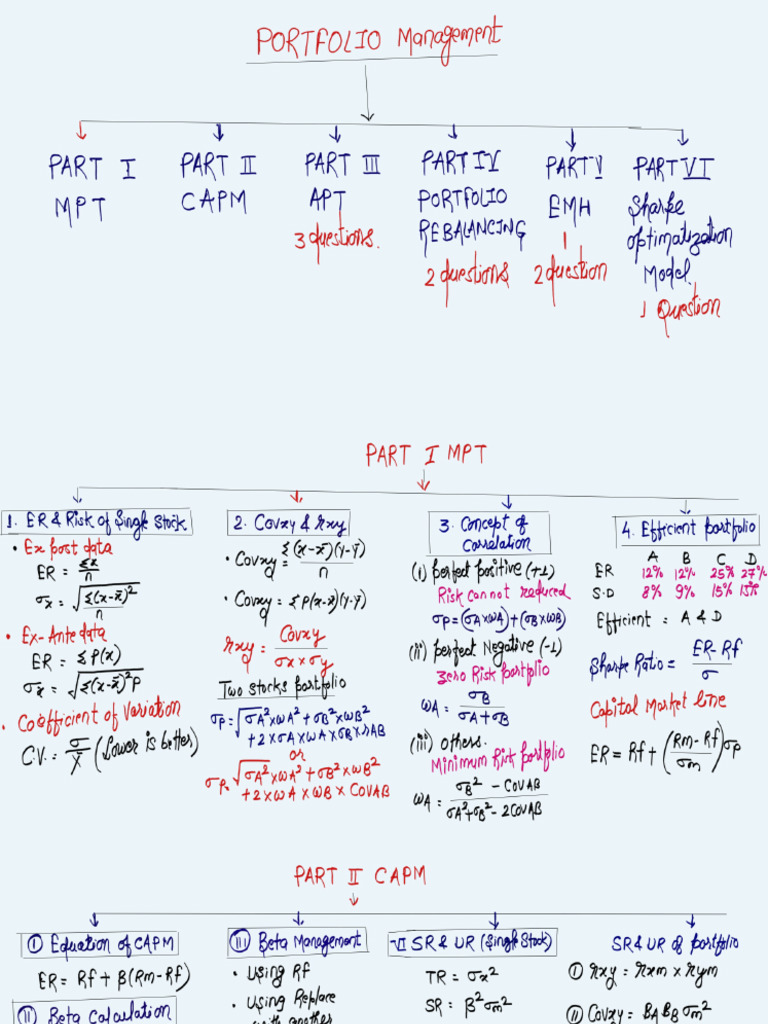 PORTFOLIO Management
PART I
MPT
PART II
CAPM
PART III
APT
3 questions.
PART IV
PORTFOLIO
REBALANCING
2 questions
PART V
EMH
1
2 question
PART VI
Sharpe
optimatization
Model.
1 Question
PART I MPT
1. ER & Risk of Single Stock
• Ex post data
ER = Σx/n
σx = √Σ(x-x̄)²/n
• Ex-Ante data
ER = ΣP(x)
σx = √Σ(x-x̄)²P
• Coefficient of Variation
C.V. = σ/X̄ (Lower is better)
2. Covxy & rxy
• Covxy = Σ(x-x̄)(y-ȳ)/n
• Covxy = ΣP(x-x̄)(y-ȳ)
rxy = Covxy/σx×σy
Two stocks portfolio
σp = √σA²×ωA² + σB²×ωB²
+2×σA×ωA×σB×rAB
or
σp = √σA²×ωA² + σB²×ωB²
+2×ωA×ωB×COVAB
3. Concept of
Correlation
(i) perfect positive (+1)
Risk cannot reduced
σp = (σA×ωA) + (σB×ωB)
(ii) perfect Negative (-1)
Zero Risk portfolio
ωA = σB/σA+σB
(iii) others.
Minimum Risk portfolio
ωA = σB² - COVAB/σA²+σB²-2COVAB
4. Efficient portfolio
A B C D
ER 12% 12% 25% 27%
S.D 8% 9% 15% 15%
Efficient = A & D
Sharpe Ratio = ER-Rf/σ
Capital Market line
ER = Rf + (Rm-Rf/σm)σp
PART II CAPM
I Equation of CAPM
ER = Rf + β(Rm-Rf)
II Beta Calculation
III Beta Management
• Using Rf
• Using Replace
with another
VI SR & UR (Single Stock)
TR = σx²
SR = β²σm²
SR & UR of portfolio
I rxy = rxm × rym
II Covxy = βA βB σm²